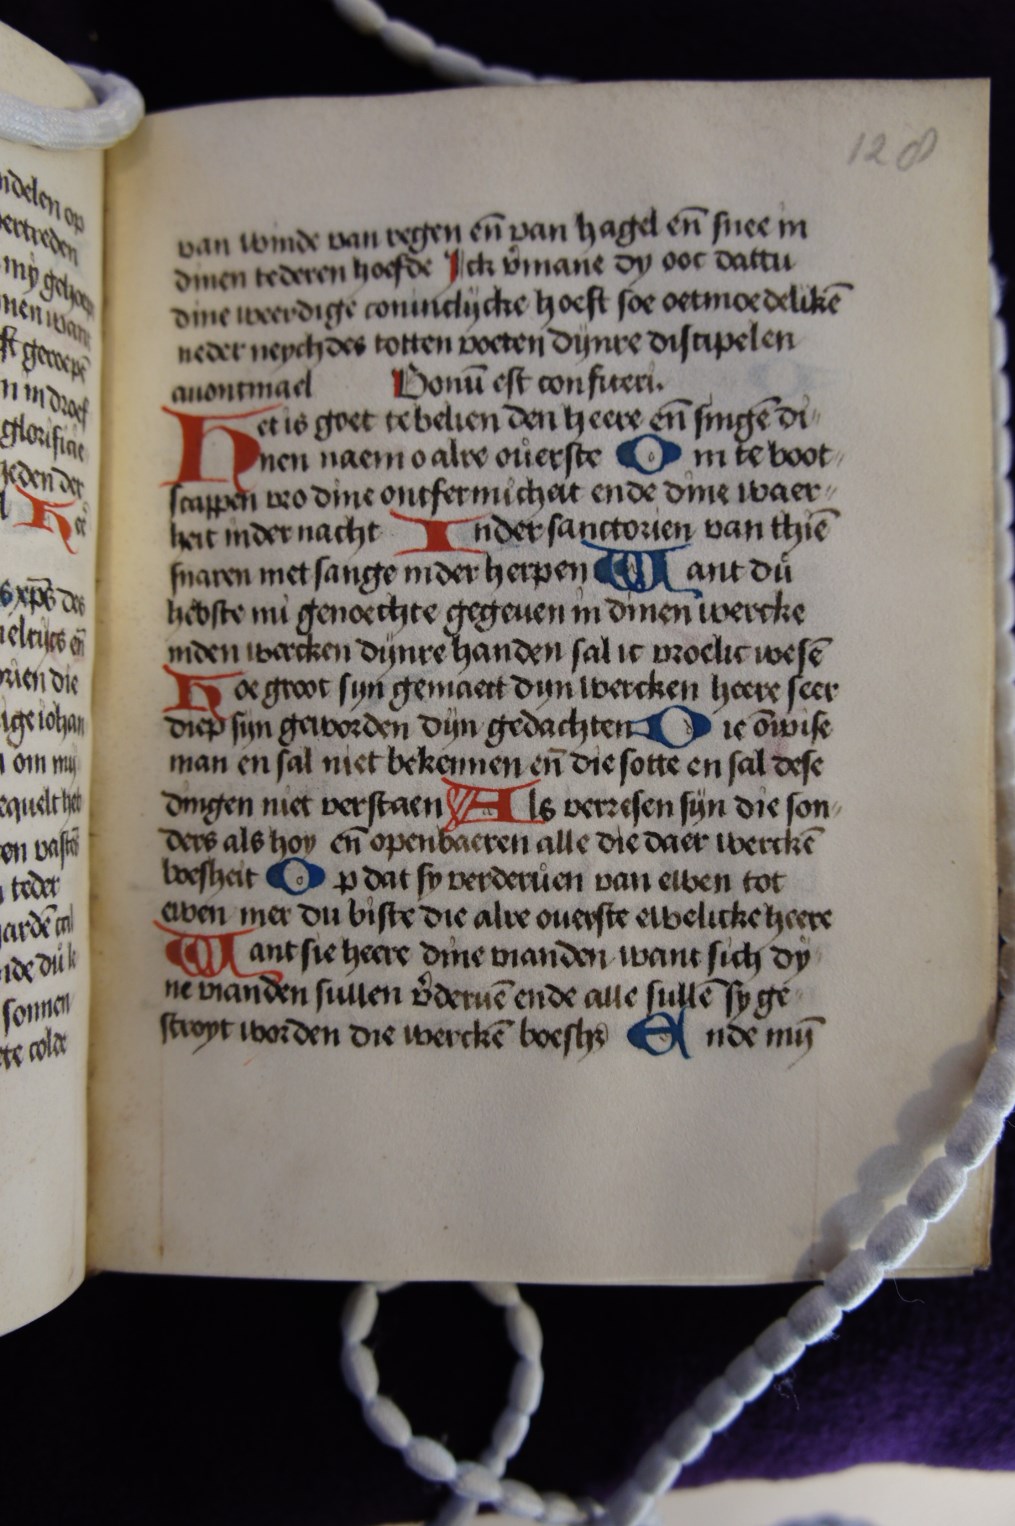 128
van winde van regen en̄ van hagel en̄ snee in
dinen tederen hoefde Ick v̄mane dy ooc dattu
dine weerdige coninclijcke hoeft soe oetmoedelikē
neder neychdes totten voeten dijnre discipelen
auontmael Bonū est confiteri.
Het is goet te belien den heere en̄ singē di
nen naem o alre ouerste Om te boot
scappen vro dine ontfermicheit ende dine waer
heit inder nacht Inder sanctorien van thiē
snaren met sange inder herpen Want du
hebste mi genoechte gegeuen in dinen wercke
inden wercken dijnre handen sal ic vroelic wesē
Hoe groot syn gemaect dyn wercken heere seer
diep syn geworden dijn gedachten Die ōwise
man en sal niet bekennen en̄ die sotte en sal dese
dingen niet verstaen Als verresen sijn die son
ders als hoy en̄ openbaeren alle die daer werckē
boesheit Op dat sy verderuen van ewen tot
ewen mer du biste die alre ouerste ewelicke heere
Want sie heere dine vianden want sich dy
ne vianden sullen v̄deruē ende alle sullē sy ge
stroyt worden die werckē boeshz Ende mij̄
ndelen op
vertreden
my
nen want
ft geroepē
n in droef
glorificie
der
Hee
xp̄s des
en̄
die
ige iohan
om my
equelt heb
en
teder
ende du
sonnen
colde